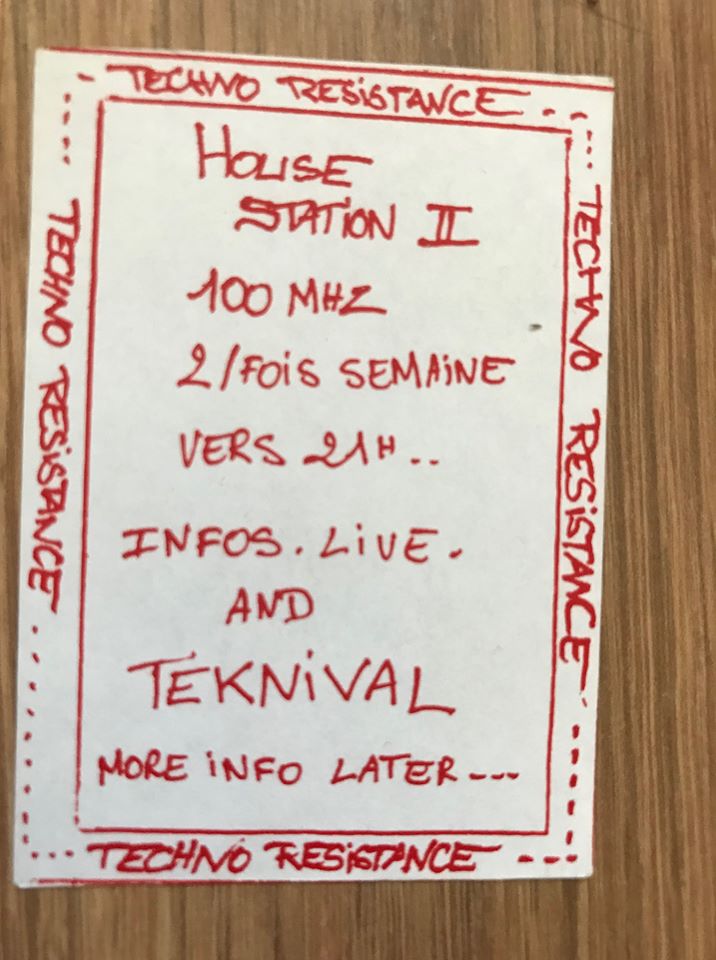 TECHNO RESISTANCE
HOUSE
STATION II
100 MHZ
2/FOIS SEMAINE
VERS 21H..
INFOS. LIVE.
AND
TEKNIVAL
MORE INFO LATER---
TECHNO RESISTANCE
TECHNO RESISTANCE
TECHNO RESISTANCE